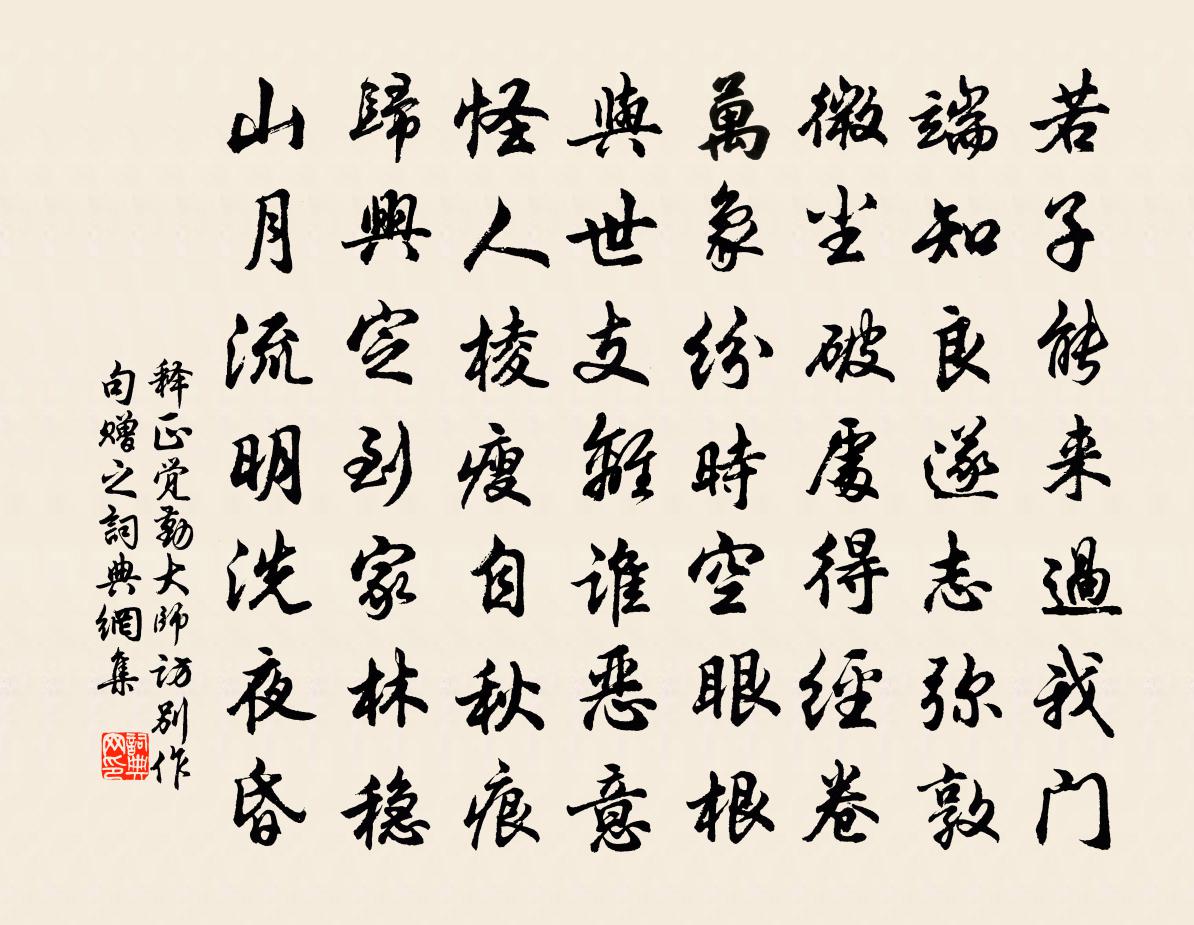 若子能来過我门
端知良遂志弥敦
微尘破處得經卷
萬象纷時空眼根
與世支離谁恶意
怪人棱瘦自秋痕
歸興定到家林稳
山月流明洗夜昏
释正觉勤大师访别作
句赠之詞典網集
詞典
网印